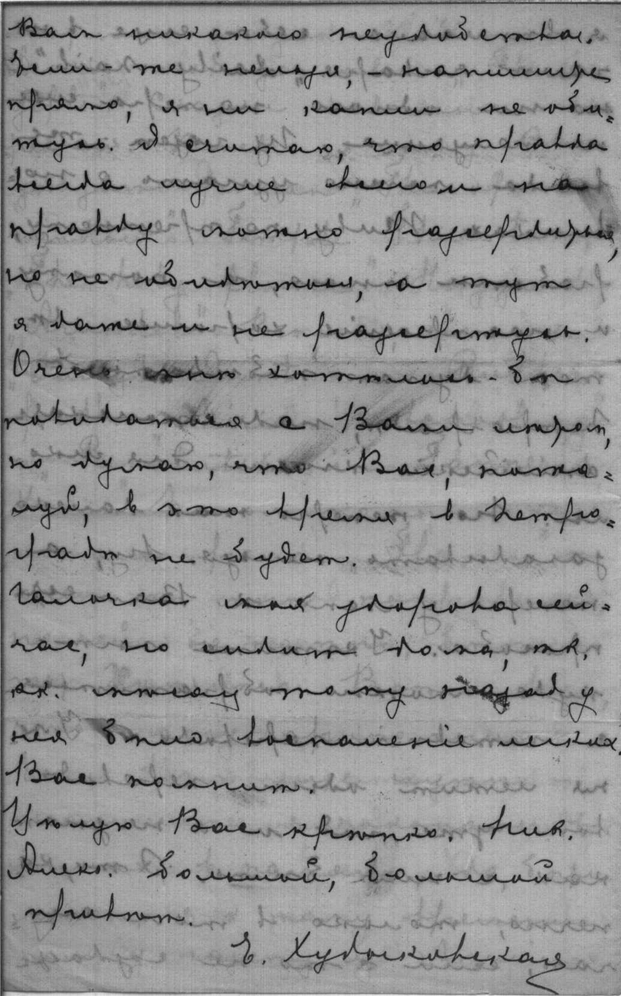 Вамъ никакого неудобства.
Если-же нельзя, - напишите
прямо, я ни капли не оби=
жусь. Я считаю, что правда
всегда лучше всего и на
правду можно разсердиться,
но не обидѣться, а тут
я даже и не разсержусь.
Очень мнѣ хотѣлось-бы
повидаться с Вами лѣтом,
но думаю, что Вас, пожа=
луй, в это время в Петро=
градѣ не будет.
Галочка моя здорова сей=
час, но сидит дома, тк.
як. мѣсяц тому назад у
нея было воспаленіе легких.
Вас помнит.
Цѣлую Вас крѣпко. Ник.
Алекс. большой, большой
привѣт.
Е. Худосковская